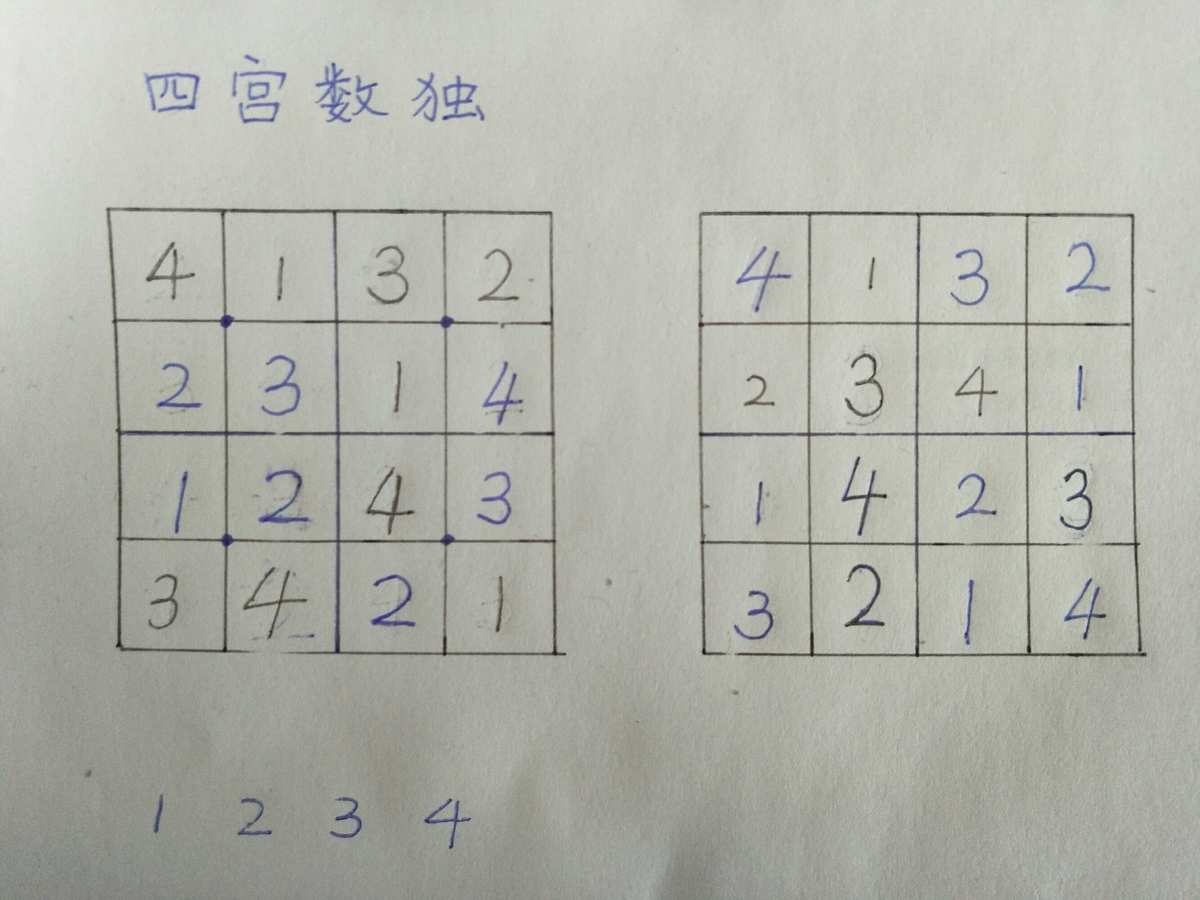 四宫数独
4 1 3 2
2 3 1 4
1 2 4 3
3 4 2 1
4 1 3 2
2 3 4 1
1 4 2 3
3 2 1 4
1 2 3 4